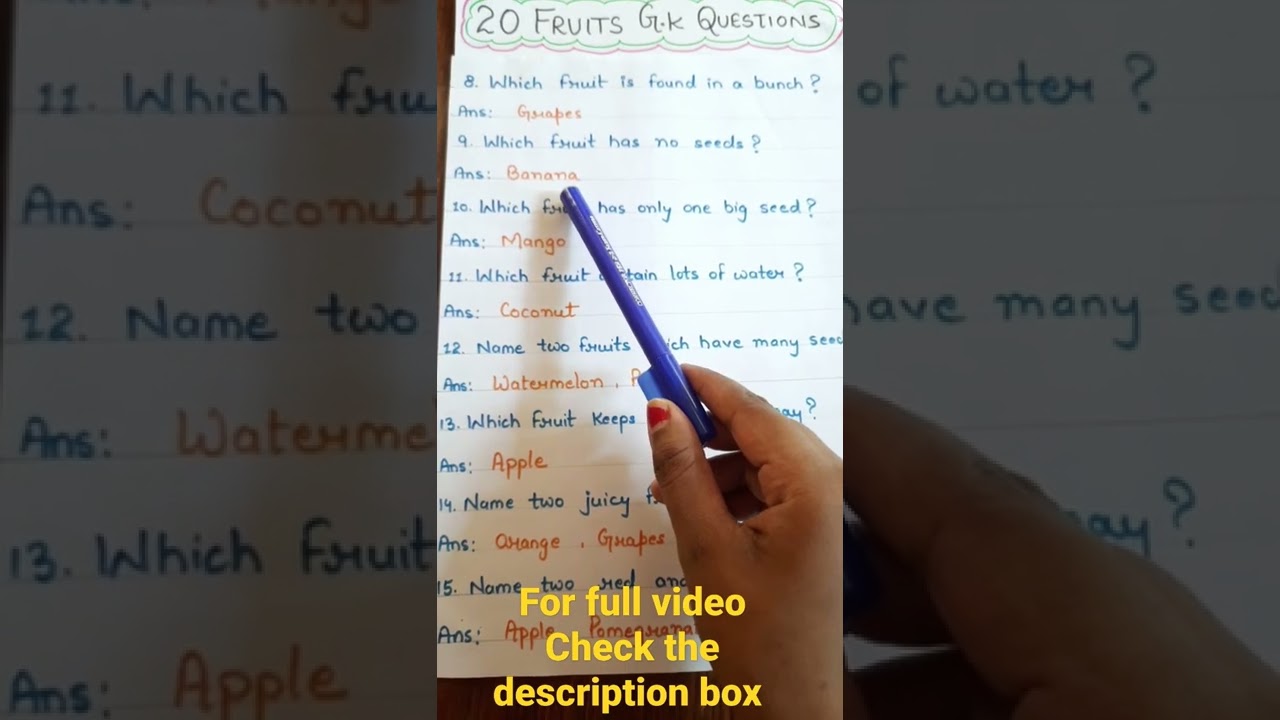 20 FRUITS G.K QUESTIONS
8. Which fruit is found in a bunch?
Ans: Grapes
9. Which fruit has no seeds?
Ans: Banana
10. Which has only one big seed?
Ans: Mango
11. Which fruit lots of water?
Ans: Coconut
12. Name two fruits have many
Ans: Watermelon,
13. Which fruit keeps
Ans: Apple
14. Name two juicy
Ans: Orange, Grapes
15. Name two red
Ans: Apple
For full video
Check the
description box
11. Which
of water?
Ans: Coconut
12. Name two
have many
Ans:
13. Which Fruit
Ans: Apple